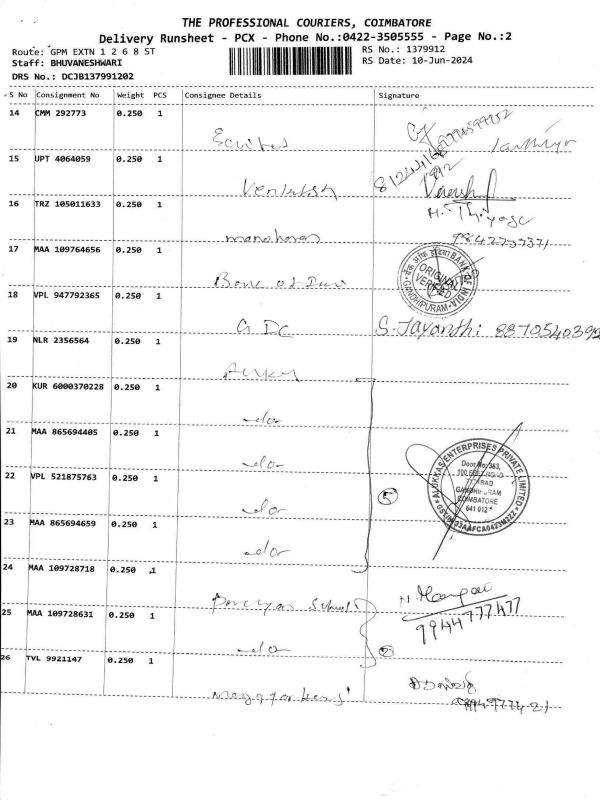 THE PROFESSIONAL COURIERS, COIMBATORE
Delivery Runsheet - PCX - Phone No.:0422-3505555 - Page No.:2
Route: GPM EXTN 1 2 6 8 ST
RS No.: 1379912
Staff: BHUVANESHWARI
RS Date: 10-Jun-2024
DRS No.: DCJB137991202
S No Consignment No Weight PCS Consignee Details Signature
14 CMM 292773 0.250 1
15 UPT 4064059 0.250 1
Venkatesh
16 TRZ 105011633 0.250 1
manohoran
17 MAA 109764656 0.250 1
BANK OF INDIA
ORIGINAL
VERIFIED
GANDHIPURAM
18 VPL 947792365 0.250 1
S. Jayanthi: 8870540392
19 NLR 2356564 0.250 1
20 KUR 6000370228 0.250 1
-do-
21 MAA 865694405 0.250 1
-do-
22 VPL 521875763 0.250 1
-do-
5
ALUKKAS ENTERPRISES PRIVATE LIMITED
Door No: 383,
GANDHIPURAM
COIMBATORE
641 012
23 MAA 865694659 0.250 1
-do-
24 MAA 109728718 0.250 1
25 MAA 109728631 0.250 1
9944777477
-do-
2
26 TVL 9921147 0.250 1